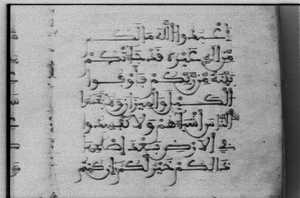 اعْبُدُوا اللَّهَ مَا لَكُم
مِّنْ إِلَهٍ غَيْرُهُ قَدْ جَاءَتْكُم
بَيِّنَةٌ مِّن رَّبِّكُمْ فَأَوْفُوا
الْكَيْلَ وَالْمِيزَانَ وَلَا تَبْخَسُوا
النَّاسَ أَشْيَاءَهُمْ وَلَا تُفْسِدُوا
فِي الْأَرْضِ بَعْدَ إِصْلَاحِهَا
ذَالِكُمْ خَيْرٌ لَّكُمْ إِن كُنتُم